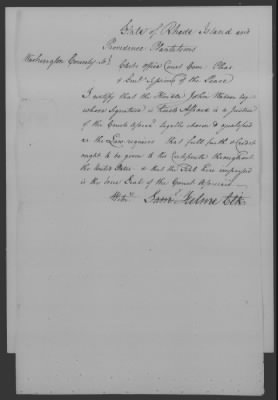 State of Rhode Island and
Providence Plantations
Washington County Ss
Clerks office Court Com. Pleas
& Genl Sessions of the Peace
I certify that the Honble John
whose Signature is affixed is a Justice
of the Court aforesd legally chosen & qualified
as the Law requires that full faith & Credit
ought to be given to his Certificate throughout
the United States & that the Seal here impressed
is the true Seal of the Court aforesaid
Witns
Saml Helme Clk